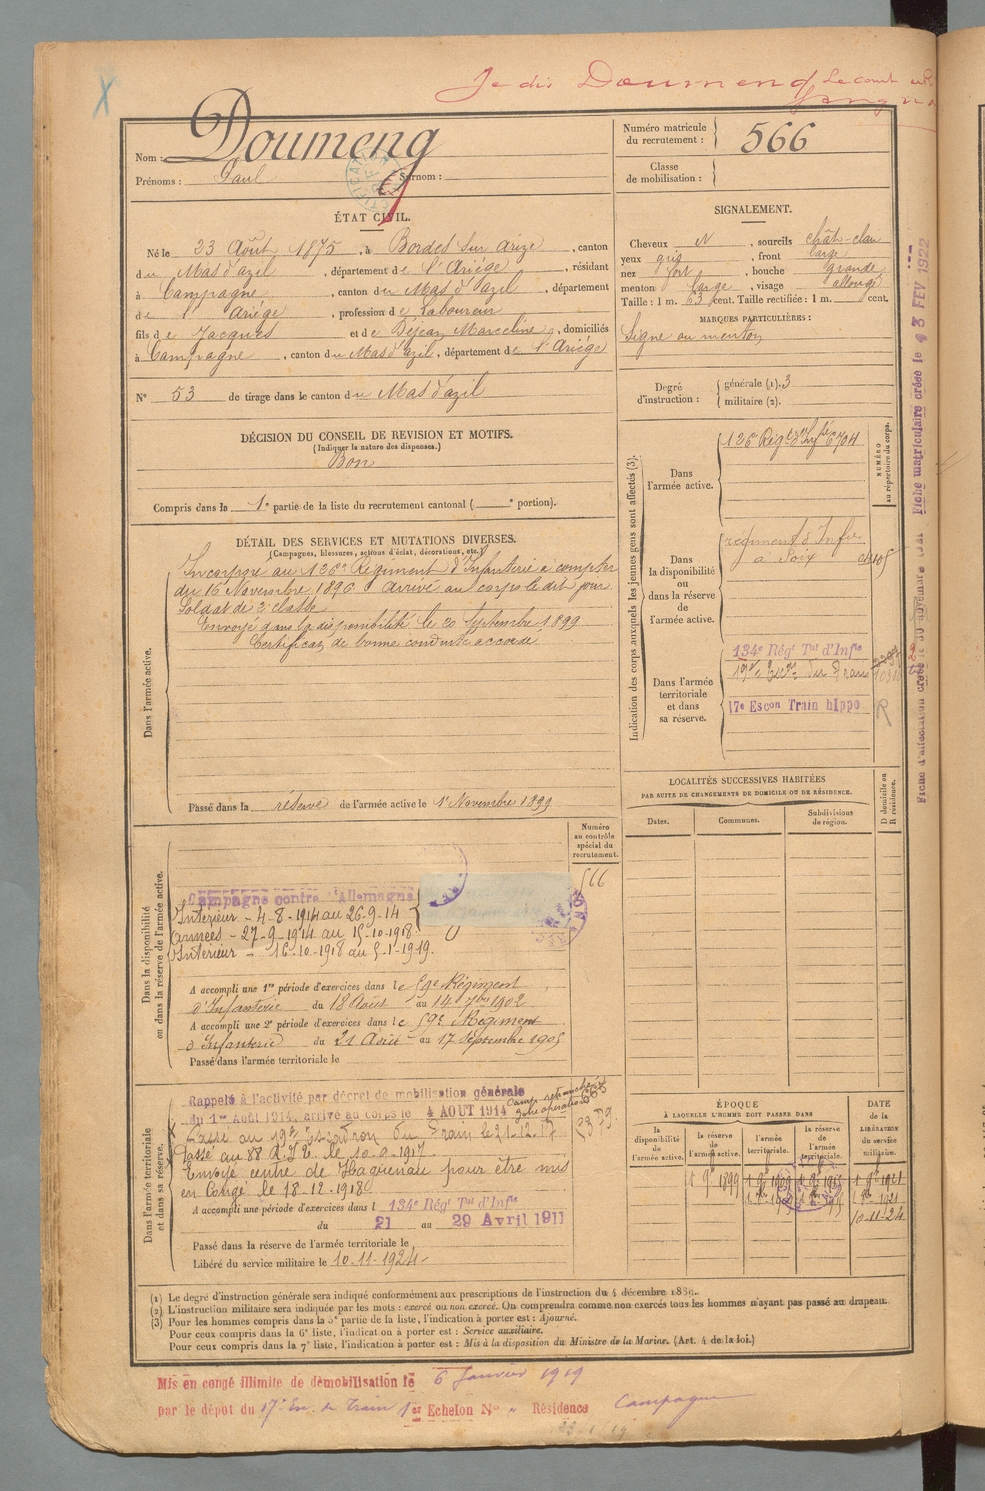 Je dis Doumeng
Nom : Doumeng
Prénoms : Paul Surnom :
Numéro matricule du recrutement : 566
Classe de mobilisation :
ÉTAT CIVIL.
Né le 23 Août 1875, à Bordes sur Arize, canton
du Mas d'azil, département de l'Ariège, résidant
à Campagne, canton du Mas d'azil, département
de l'Ariège, profession de Laboureur
fils de Jacques et de Béjean Marceline, domiciliés
à Campagne, canton du Mas d'azil, département de l'Ariège
N° 53 de tirage dans le canton du Mas d'azil
DÉCISION DU CONSEIL DE REVISION ET MOTIFS.
(Indiquer la nature des dispenses.)
Bon
Compris dans la 1e partie de la liste du recrutement cantonal ( e portion).
SIGNALEMENT.
Cheveux N, sourcils chât-clair
yeux gris, front large
nez fort, bouche grande
menton large, visage allongé
Taille : 1 m. 63 cent. Taille rectifiée : 1 m. cent.
MARQUES PARTICULIÈRES :
Signe au menton
Degré d'instruction : générale (1). 3
militaire (2).
DÉTAIL DES SERVICES ET MUTATIONS DIVERSES.
(Campagnes, blessures, actions d'éclat, décorations, etc.)
Dans l'armée active.
Incorporé au 126e Régiment d'Infanterie à compter
du 16 Novembre 1896. Arrivé au corps le dit jour
Soldat de 2e classe
Envoyé dans la disponibilité le 20 Septembre 1899
Certificat de bonne conduite accordé
Passé dans la réserve de l'armée active le 1er Novembre 1899
Indication des corps auxquels les jeunes gens sont affectés (3).
NUMÉRO au répertoire du corps.
Dans l'armée active.
126e Régt d'Infie 6704
Dans la disponibilité ou dans la réserve de l'armée active.
régiment d'Infie
a Foix
Dans l'armée territoriale et dans sa réserve.
134e Rég Tal d'Infie
19e Escon du Train
17e Escon Train hippo
R
Fiche matriculaire créée le 13 FEV 1922
LOCALITÉS SUCCESSIVES HABITÉES
PAR SUITE DE CHANGEMENTS DE DOMICILE OU DE RÉSIDENCE.
Dates. Communes. Subdivisions de région. D domicile ou R résidence.
Dans la disponibilité ou dans la réserve de l'armée active.
Numéro au contrôle spécial du recrutement.
566
Campagne contre l'Allemagne
Intérieur - 4-8-1914 au 26-9-14
Armées - 27-9-1914 au 15-10-1918
Intérieur - 16-10-1918 au 5-1-1919.
A accompli une 1re période d'exercices dans le 59e Régiment
d'Infanterie du 18 Août au 14 7bre 1902
A accompli une 2e période d'exercices dans le 59e Régiment
d'Infanterie du 21 Août au 17 Septembre 1905
Passé dans l'armée territoriale le
Dans l'armée territoriale et dans sa réserve.
Rappelé à l'activité par décret de mobilisation générale
du 1er Août 1914, arrivé au corps le 4 AOUT 1914
Passé au 19e Escadron du Train le 21-12-17
Passé au 88 R.I.T. le 10-9-1917
Envoyé centre de Haguenau pour être mis
en Congé le 18-12-1918
A accompli une période d'exercices dans l 134e Rég Tal d'Infie
du 21 au 29 Avril 1911
Passé dans la réserve de l'armée territoriale le
Libéré du service militaire le 10-11-1924
ÉPOQUE
À LAQUELLE L'HOMME DOIT PASSER DANS
la disponibilité de l'armée active.
la réserve de l'armée active.
l'armée territoriale.
la réserve de l'armée territoriale.
DATE de la LIBÉRATION du service militaire.
10-11-24
(1) Le degré d'instruction générale sera indiqué conformément aux prescriptions de l'instruction du 4 décembre 1889.
(2) L'instruction militaire sera indiquée par les mots : exercé ou non exercé. On comprendra comme non exercés tous les hommes n'ayant pas passé au drapeau.
(3) Pour les hommes compris dans la 5e partie de la liste, l'indication à porter est : Ajourné.
Pour ceux compris dans la 6e liste, l'indication à porter est : Service auxiliaire.
Pour ceux compris dans la 7e liste, l'indication à porter est : Mis à la disposition du Ministre de la Marine. (Art. 4 de la loi.)
Mis en congé illimité de démobilisation le 6 Janvier 1919
par le dépôt du 17e Esc. du Train 1er Echelon N° " Résidence Campagne